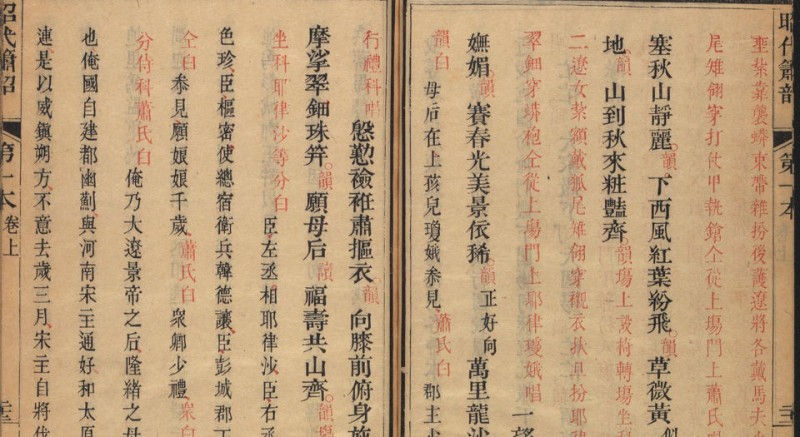 昭代簫韶 第一本
紮靠襲蟒束帶雜扮後護遼將各戴馬夫
尾雉翎穿打仗甲執鎗仝從上場門上蕭氏
塞秋山靜麗韻下西風紅葉紛飛韻草薇黃
地韻山到秋來粧豔齊韻場上設椅轉場坐科
二遼女紮額戴狐尾雉翎穿襯衣扶旦扮耶律
翠鈿穿蟒袍仝從上場門上耶律瓊娥唱一望
嫵媚韻賽春光美景依稀韻正好向萬里龍沙
韻白母后在上孩兒瓊娥叅見蕭氏白郡主少
行禮科唱慇懃襝袵肅摳衣韻向膝前俯身施
摩挲翠鈿珠笄韻願母后韻福壽共山齊韻
坐科耶律沙等分白臣左丞相耶律沙臣右丞
色珍臣樞密使總宿衛兵韓德讓臣彭城郡王
仝白叅見願娘娘千歲蕭氏白衆卿少禮衆白
分侍科蕭氏白俺乃大遼景帝之后隆緒之母
也俺國自建都幽薊與河南宋主通好和太原
連是以威鎭朔方不意去歲三月宋主自將伐
昭代簫韶 第一本 卷上